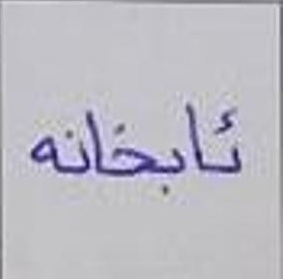 ئابخانه